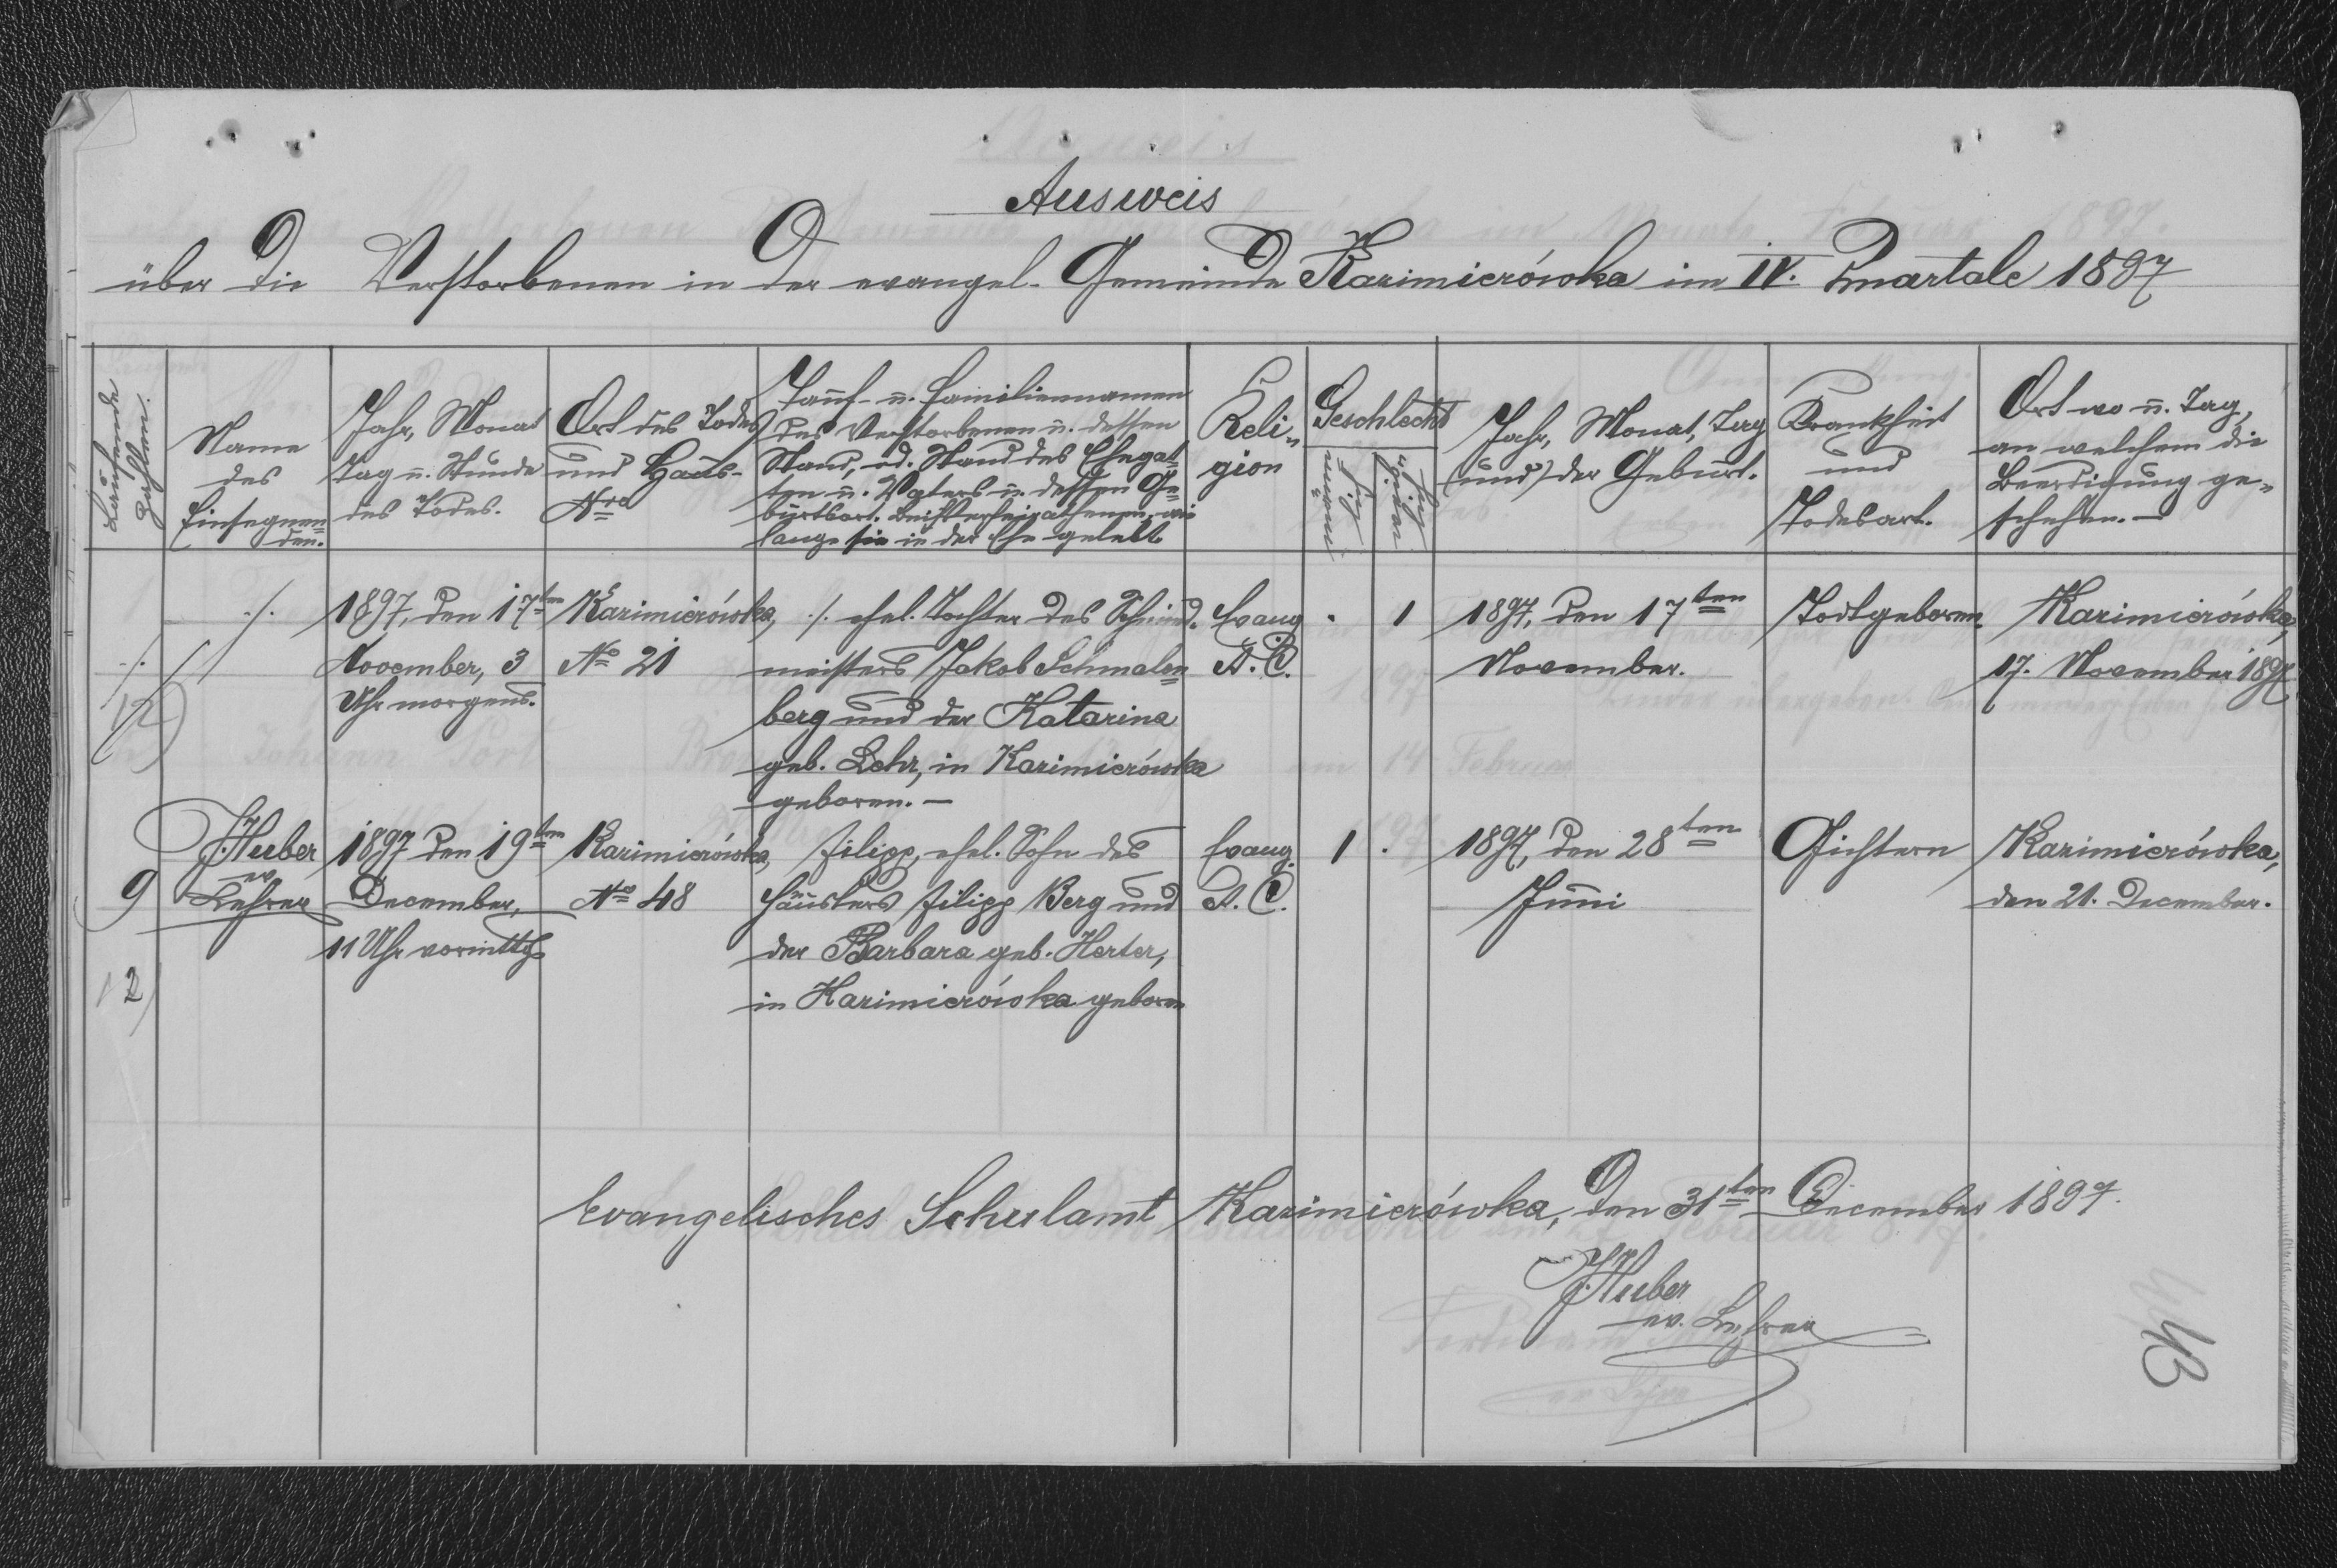 Ausweis
über die Verstorbenen in der evangel. Gemeinde Kazimierówka im IV. Quartale 1897
Laufende Zahlen.
Name
des
Einsegnen=
den.
Jahr, Monat
Tag u. Stunde
des Todes.
Ort des Todes
und Haus-
Nro
Tauf- u. Familiennamen
des Verstorbenen u. dessen
Stand, od. Stand des Ehegat=
ten u. Vaters u. dessen Ge=
burtsort. Bei Verheirathenen, wie
lange sie in der Ehe gelebt
Reli=
gion
Geschlecht
männ=
lich
weib=
lich
Jahr, Monat, Tag
(und) der Geburt.
Krankheit
und
Todesart.
Ort wo u. Tag,
an welchem die
Beerdigung ge=
schehen.—
./.
12)
./.
1897, den 17ten
November, 3
Uhr morgens.
Kazimierówka,
No 21
./. ehel. Tochter des Schmied=
meisters Jakob Schmalen=
berg und der Katarina
geb. Lehr, in Kazimierówka
geboren.—
Evang.
A. C.
. 1
1897, den 17ten
November.
Todtgeboren.
Kazimierówka,
17. November 1897
9
12)
J. Huber
ev.
Lehrer
1897 den 19ten
December,
11 Uhr vormittgs
Kazimierówka,
No 48
Filipp, ehel. Sohn des
Häuslers Filipp Berg und
der Barbara geb. Herter,
in Kazimierówka geboren
Evang.
A. C.
1 .
1897, den 28ten
Juni
Gichtern
Kazimierówka,
den 21. December.
Evangelisches Schulamt Kazimierówka, den 31ten December 1897.
J. Huber
ev. Lehrer